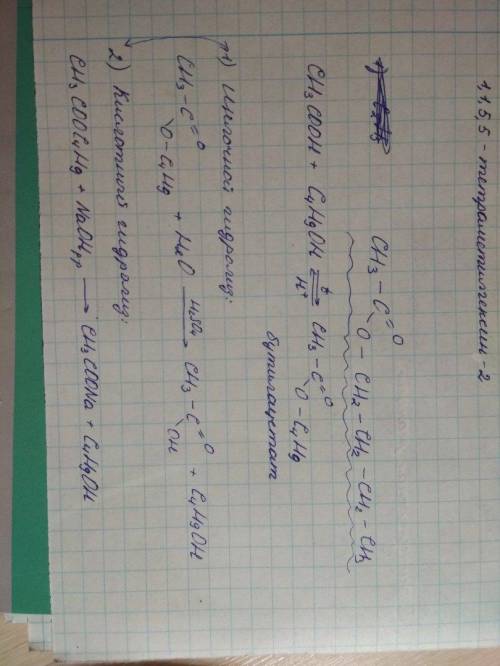 1,1,5,5 - тетраметилгексин -2
CH3 - C = O
O - CH2 - CH2 - CH2 - CH3
CH3COOH + C4H9OH ⇄ t H+ CH3 - C = O
O - C4H9
бутилацетат
1) Щелочной гидролиз:
CH3 - C = O
O - C4H9 + H2O H2SO4 → CH3 - C = O
OH + C4H9OH
2) Кислотный гидролиз:
CH3COOC4H9 + NaOH р.р → CH3COONa + C4H9OH